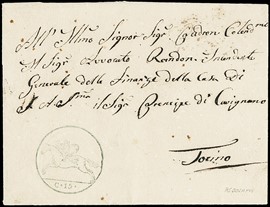 All' Illmo Signor Sigr Padron Colendmo
Il Sigr Avvocato Rendon Intendente
Generale delle Finanze della Casa di
S. A. Sma il Sigr Principe di Carignano
Torino
C. 15